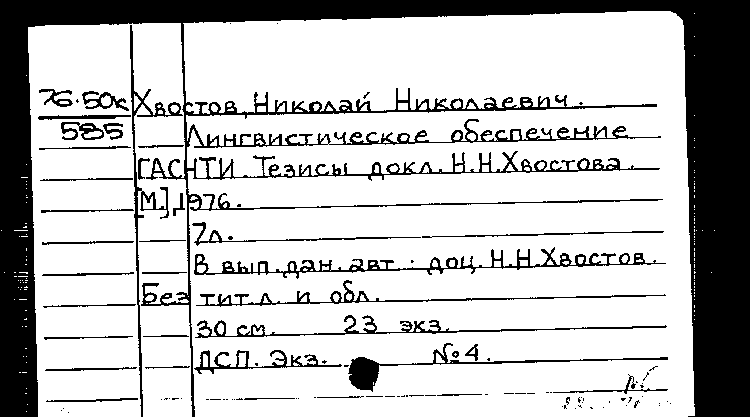 76-50к Хвостов, Николай Николаевич.
585 Лингвистическое обеспечение
ГАСНТИ. Тезисы докл. Н.Н.Хвостова.
[М.], 1976.
7л.
В вып.дан. авт.: доц. Н.Н.Хвостов.
Без тит.л. и обл.
30 см. 23 экз.
ДСП. Экз. №4.